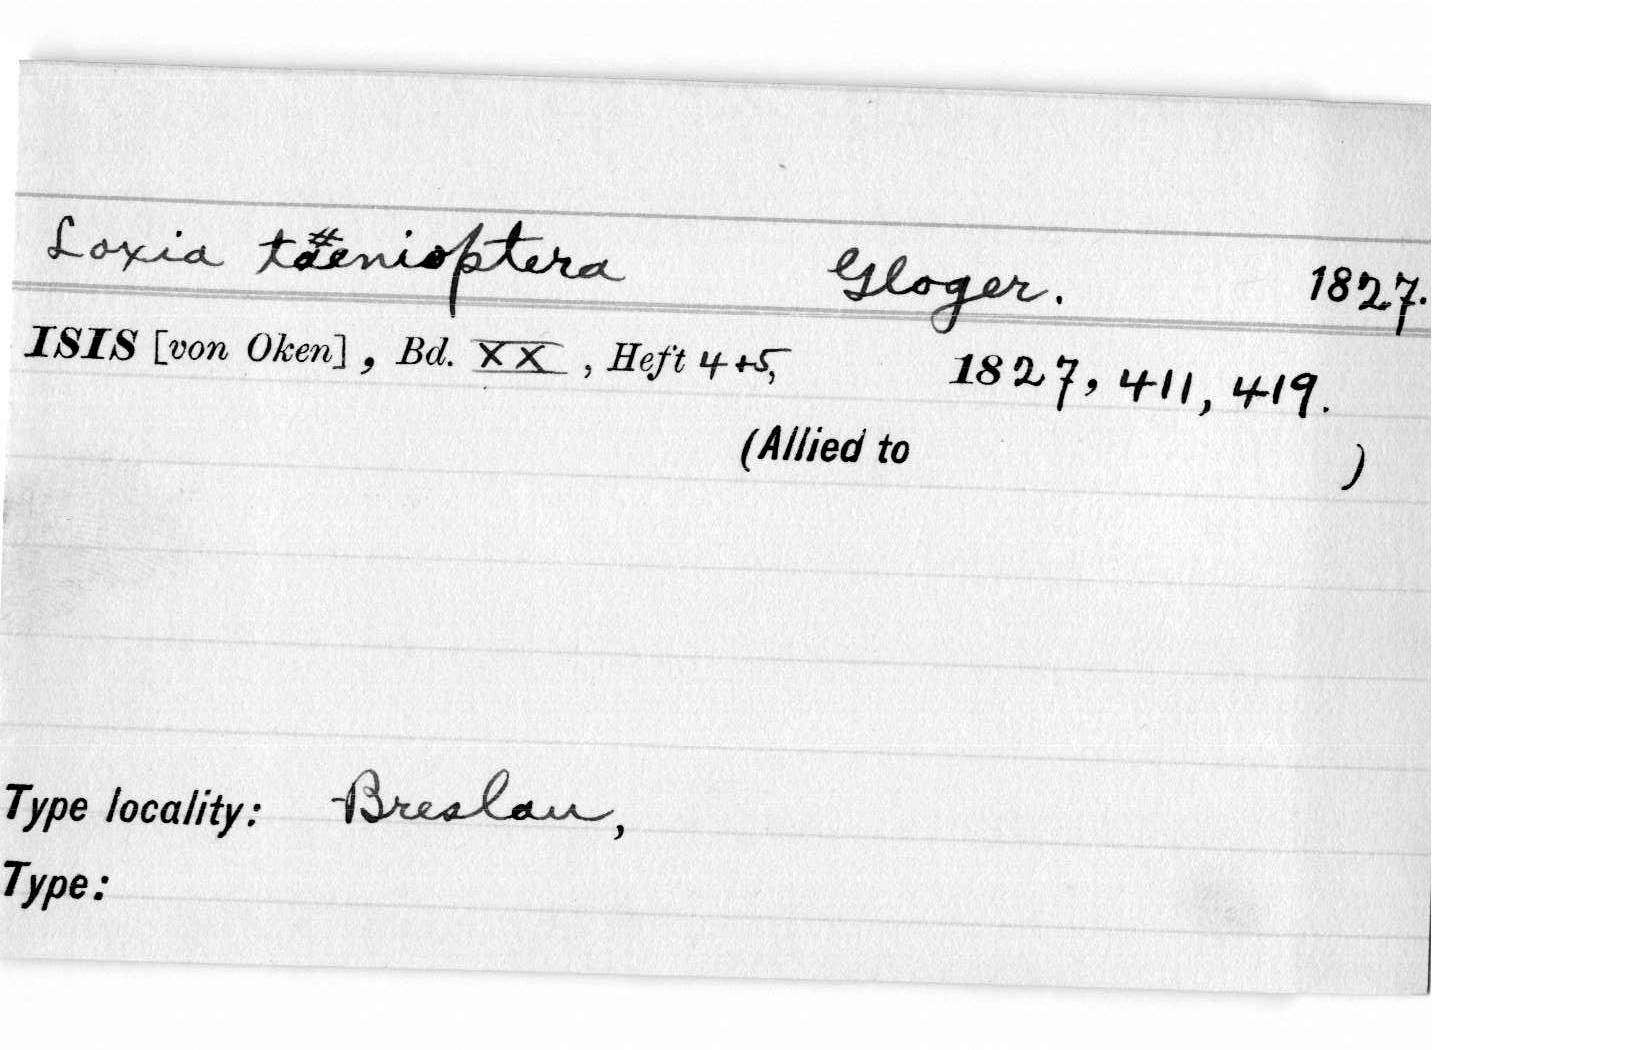 Loxia tænioptera Gloger. 1827.
ISIS [von Oken], Bd. XX, Heft 4+5, 1827, 411, 419.
(Allied to )
Type locality: Breslau,
Type: